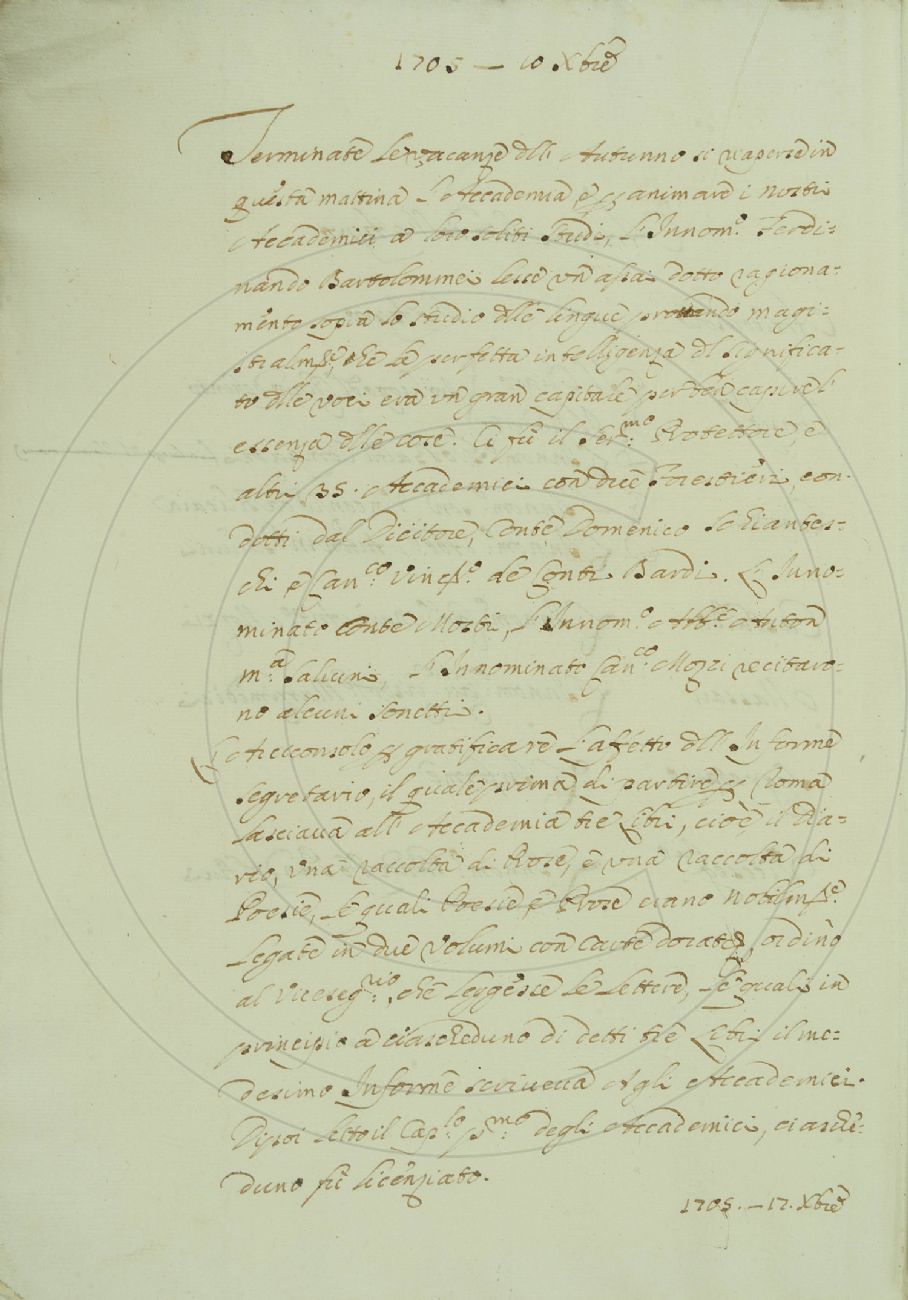 1705 — 10 Xbre
Terminate le vacanze dll' Autunno si riaperse in
questa mattina l'Accademia, e p animare i nostri
Accademici a loro soliti studi, l'Innom.º Ferdi-
nando Bartolommei lesse un assai dotto ragiona-
mento sopra lo studio dlle lingue provando magi-
stralmte, che la perfetta intelligenza dl significa-
to dlle voci era un gran capitale per ben capire l'
essenza dlle cose. Ci fu il Ser.mo Protettore, e
altri 35. Accademici con due Forestieri, con-
dotti dal Dicitore, Conte Domenico
chi e Can.co Vinc.º de Conti Bardi. L'Inno-
minato Conte Morbi, l'Innom.º Abb.e Anton
M.a Salvini, l'Innominato Can.co Mozzi recitaro-
no alcuni sonetti.
L'Arciconsolo p gratificare l'affetto dll' Informe
segretario, il quale prima di partire p Roma
lasciava all' Accademia tre libri, cioè il Dia-
rio, una raccolta di Prose, e una raccolta di
Poesie, le quali Poesie e Prose erano nobilmte
legate in due volumi con carte dorate, ordinò
al Viceseg.rio, che leggesse le lettere, le quali in
principio a ciascheduno di detti tre libri il me-
desimo Informe scriveva agli Accademici.
Dipoi letto il Cap.lo p.mo degli Accademici, ciasche-
duno fu licenziato.
1705. — 17. Xbre